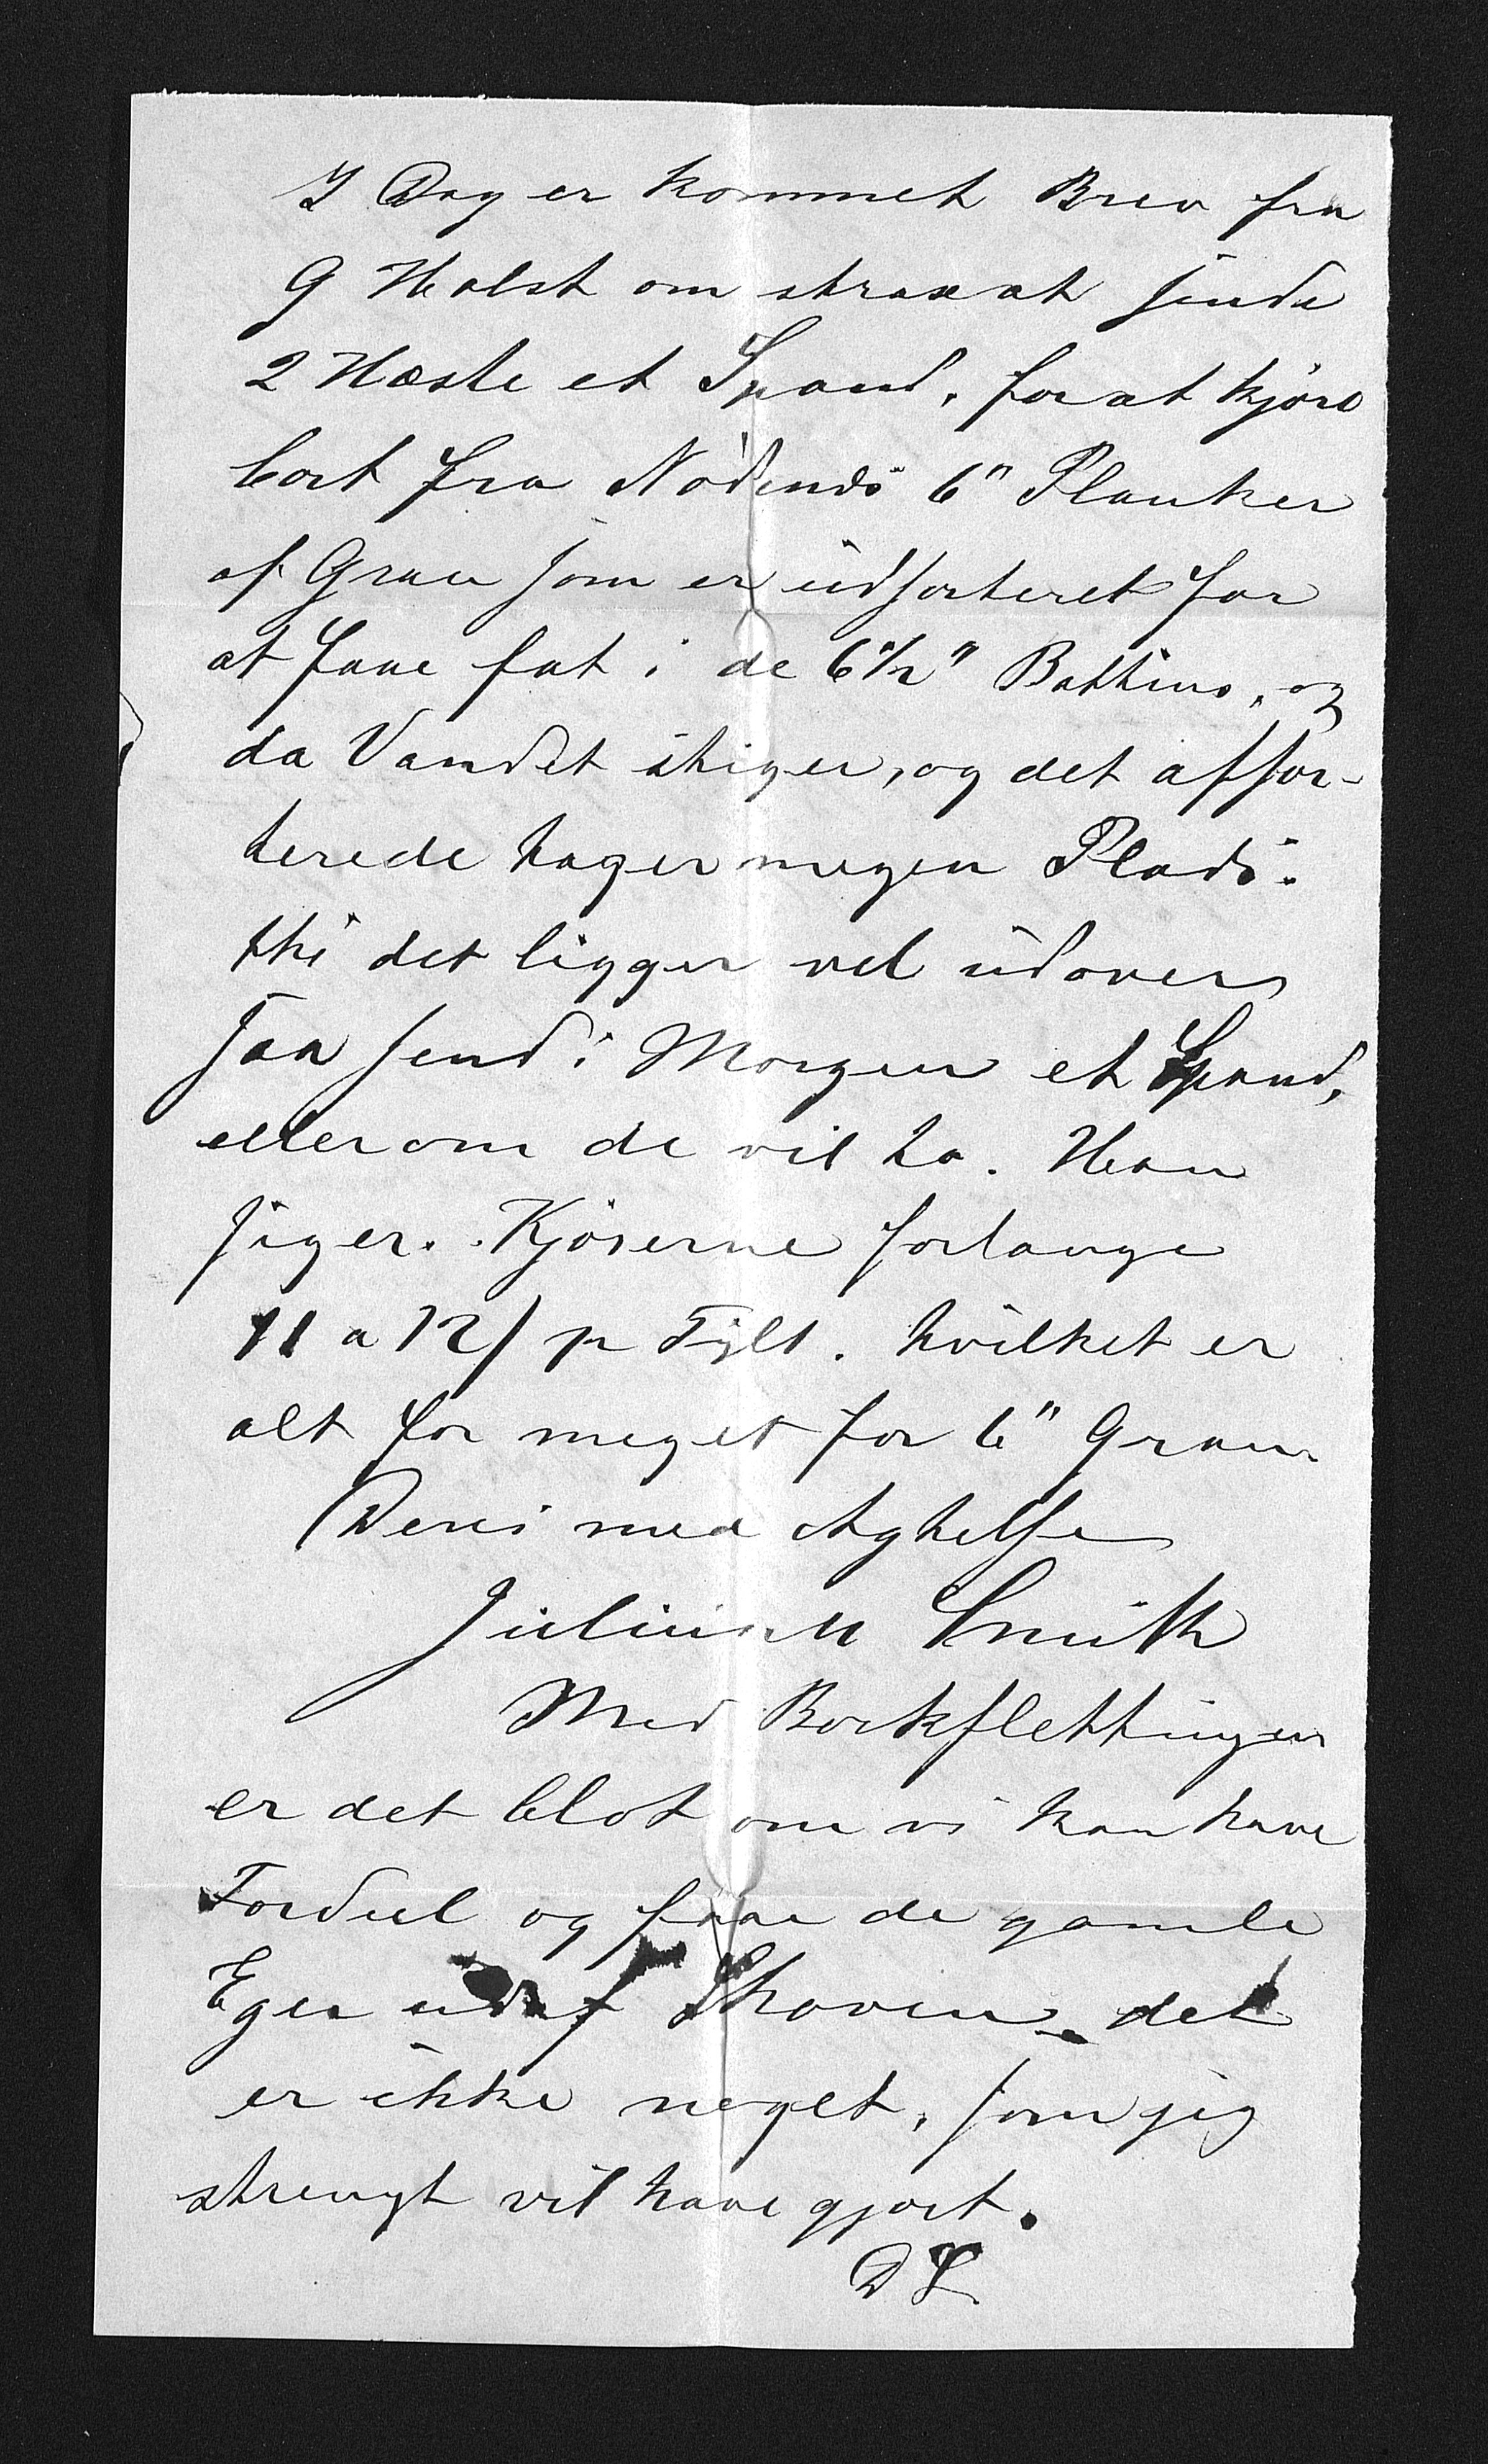 I Dag er kommet Brev fra
G Holst om strax at sende
2 Hæste et Spand, for at kjøre
bort fra Nødnæs 6" Planker
af Gran som er udsorteret for
at faae fat i de 6½" Battens, og
da Vandet stiger, og det afsor-
terede tager megen Plads.
thi det ligger vel udover
saa send i Morgen et Spand,
eller om de vil to. Han
siger. Kjørerne forlange
11 a 12/ pr Tylt. hvilket er
alt for meget for 6" Gran
Deres med Agtelse
Julius M Smith
Med Borkflettingen
er det blot om vi kan have
Fordeel og faae de gamle
Eger ud af Skoven. det
er ikke noget, som jeg
strengt vil have gjort.
DS